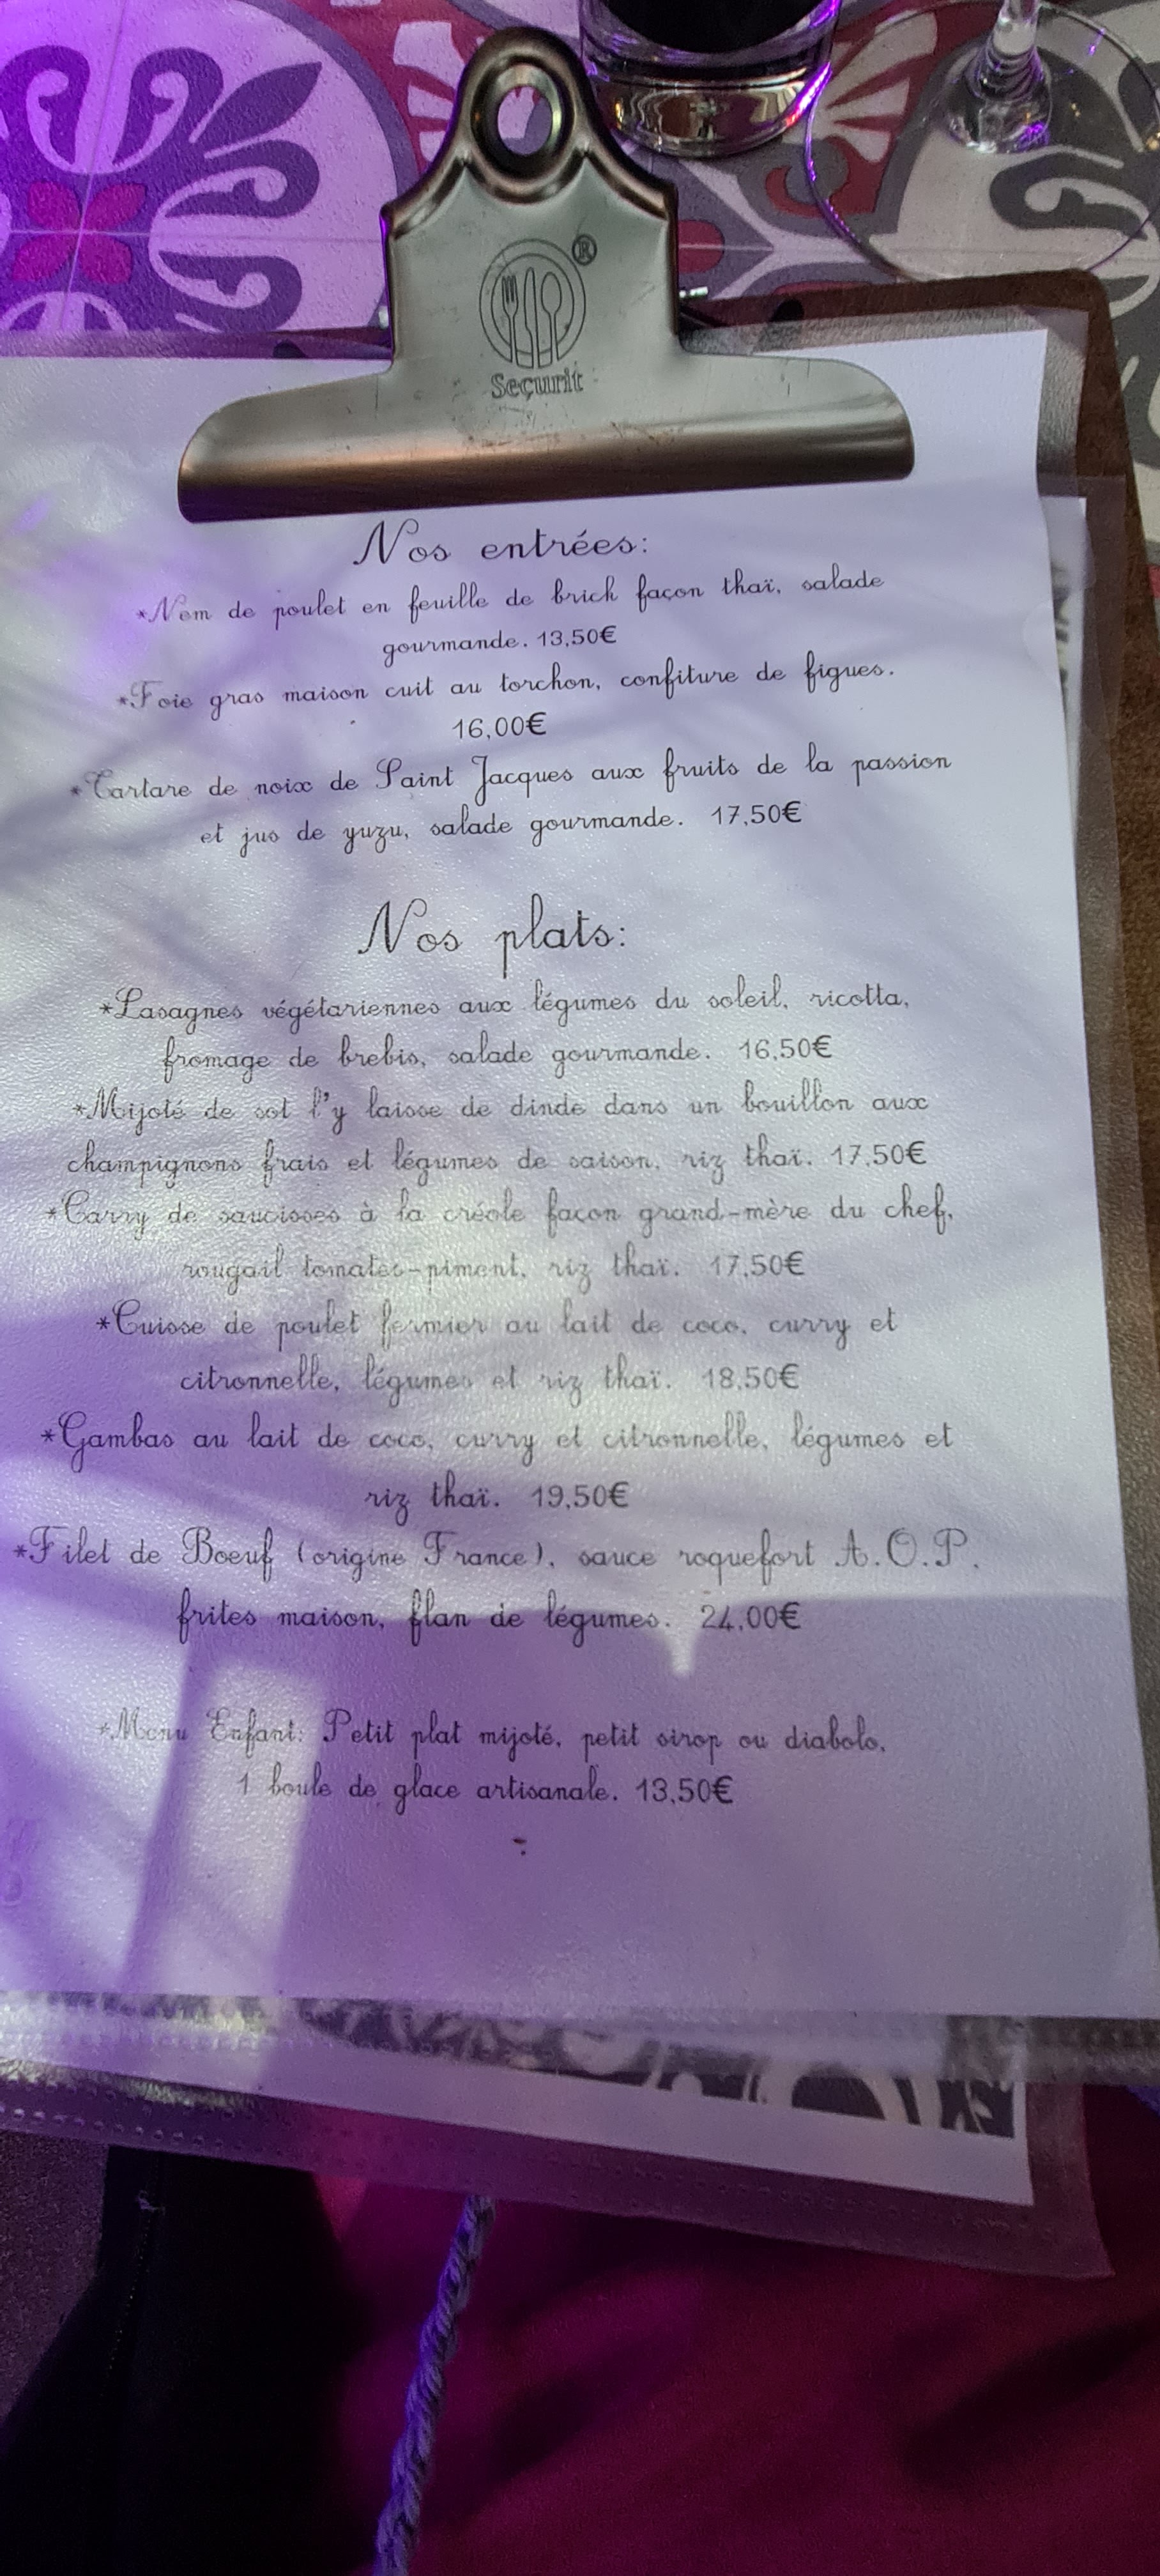 ®
Securit
Nos entrées:
*Nem de poulet en feuille de brick façon thaï, salade
gourmande. 13,50€
*Foie gras maison cuit au torchon, confiture de figues.
16,00€
*Tartare de noix de Saint Jacques aux fruits de la passion
et jus de yuzu, salade gourmande. 17,50€
Nos plats:
*Lasagnes végétariennes aux légumes du soleil, ricotta,
fromage de brebis, salade gourmande. 16,50€
*Mijoté de sot l'y laisse de dinde dans un bouillon aux
champignons frais et légumes de saison, riz thaï. 17,50€
*Carry de saucisses à la créole façon grand-mère du chef,
rougail tomates-piment, riz thaï. 17,50€
*Cuisse de poulet fermier au lait de coco, curry et
citronnelle, légumes et riz thaï. 18,50€
*Gambas au lait de coco, curry et citronnelle, légumes et
riz thaï. 19,50€
*Filet de Boeuf (origine France), sauce roquefort A.O.P,
frites maison, flan de légumes. 24,00€
*Menu Enfant: Petit plat mijoté, petit sirop ou diabolo,
1 boule de glace artisanale. 13,50€